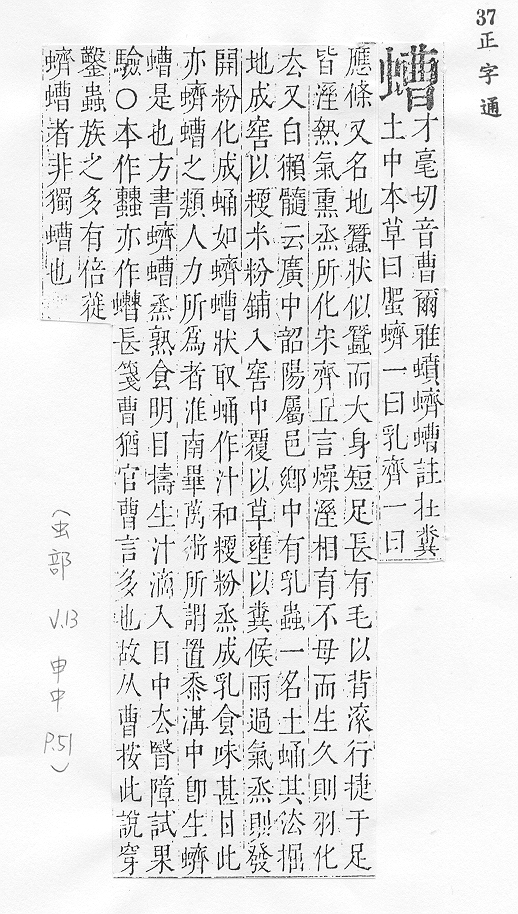 37正字通
螬
才毫切音曹爾雅蟦蠐螬註在糞
土中本草曰蟹蠐一曰乳齊一曰
應條又名地蠶狀似蠶而大身短足長有毛以背滾行捷于足
皆溼熱氣熏烝所化宋齊丘言燥溼相育不母而生久則羽化
去又白獺髓云廣中韶陽屬邑鄉中有乳蟲一名土蛹其法掘
地成窖以粳米粉鋪入窖中覆以草壅以糞候雨過氣烝則發
開粉化成蛹如蠐螬狀取蛹作汁和粳粉烝成乳食味甚甘此
亦蠐螬之類人力所爲者淮南畢萬術所謂置黍溝中卽生蠐
螬是也方書蠐螬烝熟食明目擣生汁滴入目中去瞖障試果
驗○本作𧕄亦作蠐長箋曹猶官曹言多也故从曹按此說穿
鑿蟲族之多有倍蓰
蠐螬者非獨螬也
(虫部 V.13 申中 P.51)